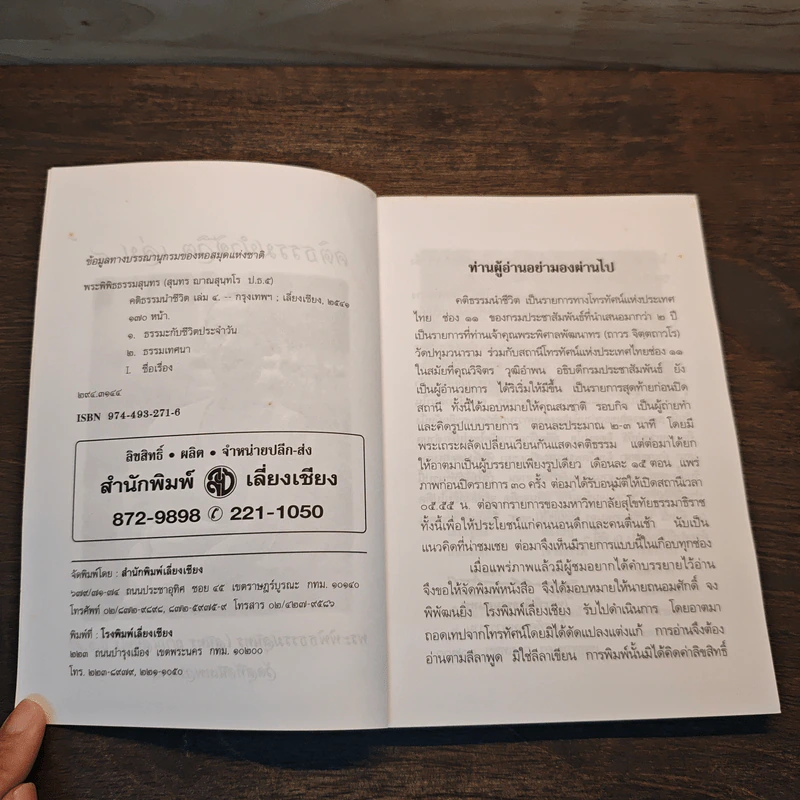 ข้อมูลทางบรรณานุกรมของหอสมุดแห่งชาติ
พระพิพิธธรรมสุนทร (สุนทร ญาณสุนฺทโร ป.ธ.๕)
คติธรรมนำชีวิต เล่ม ๔. -- กรุงเทพฯ ; เลี่ยงเชียง, ๒๕๔๑
๑๗๐ หน้า.
๑. ธรรมะกับชีวิตประจำวัน
๒. ธรรมเทศนา
I. ชื่อเรื่อง
๒๙๔.๓๑๔๔
ISBN 974-493-271-6
ลิขสิทธิ์ • ผลิต • จำหน่ายปลีก-ส่ง
สำนักพิมพ์ เลี่ยงเชียง
872-9898 ✆ 221-1050
จัดพิมพ์โดย : สำนักพิมพ์เลี่ยงเชียง
๖๗๙/๗๑-๗๔ ถนนประชาอุทิศ ซอย ๔๕ เขตราษฎร์บูรณะ กทม. ๑๐๑๔๐
โทรศัพท์ ๐๒/๘๗๒-๙๘๙๘, ๘๗๒-๕๙๗๕-๙ โทรสาร ๐๒/๔๒๗-๙๕๘๖
พิมพ์ที่ : โรงพิมพ์เลี่ยงเชียง
๒๒๓ ถนนบำรุงเมือง เขตพระนคร กทม. ๑๐๒๐๐
โทร. ๒๒๓-๘๙๗๙, ๒๒๑-๑๐๕๐
ท่านผู้อ่านอย่ามองผ่านไป
คติธรรมนำชีวิต เป็นรายการทางโทรทัศน์แห่งประเทศ
ไทย ช่อง ๑๑ ของกรมประชาสัมพันธ์ที่นำเสนอมากว่า ๒ ปี
เป็นรายการที่ท่านเจ้าคุณพระพิศาลพัฒนาทร (ถาวร จิตฺตถาวโร)
วัดปทุมวนาราม ร่วมกับสถานีโทรทัศน์แห่งประเทศไทยช่อง ๑๑
ในสมัยที่คุณวิจิตร วุฒิอำพน อธิบดีกรมประชาสัมพันธ์ ยัง
เป็นผู้อำนวยการ ได้ริเริ่มให้มีขึ้น เป็นรายการสุดท้ายก่อนปิด
สถานี ทั้งนี้ได้มอบหมายให้คุณสมชาติ รอบกิจ เป็นผู้ถ่ายทำ
และคิดรูปแบบรายการ ตอนละประมาณ ๒-๓ นาที โดยมี
พระเถระผลัดเปลี่ยนเวียนกันแสดงคติธรรม แต่ต่อมาได้ยก
ให้อาตมาเป็นผู้บรรยายเพียงรูปเดียว เดือนละ ๑๕ ตอน แพร่
ภาพก่อนปิดรายการ ๓๐ ครั้ง ต่อมาได้รับอนุมัติให้เปิดสถานีเวลา
๐๕.๕๕ น. ต่อจากรายการของมหาวิทยาลัยสุโขทัยธรรมาธิราช
ทั้งนี้เพื่อให้ประโยชน์แก่คนนอนดึกและคนตื่นเช้า นับเป็น
แนวคิดที่น่าชมเชย ต่อมาจึงเห็นมีรายการแบบนี้ในเกือบทุกช่อง
เมื่อแพร่ภาพแล้วมีผู้ชมอยากได้คำบรรยายไว้อ่าน
จึงขอให้จัดพิมพ์หนังสือ จึงได้มอบหมายให้นายถนอมศักดิ์ จง
พิพัฒนยิ่ง โรงพิมพ์เลี่ยงเชียง รับไปดำเนินการ โดยอาตมา
ถอดเทปจากโทรทัศน์โดยมิได้ดัดแปลงแต่งแก้ การอ่านจึงต้อง
อ่านตามลีลาพูด มิใช่ลีลาเขียน การพิมพ์นั้นมิได้คิดค่าลิขสิทธิ์